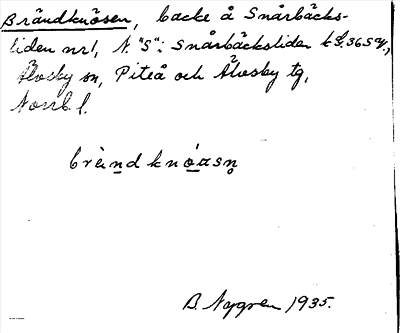 Brändknösen, backe å Snårbäcks-
liden nr 1, N. "S": Snårbäcksliden
Älvsby sn, Piteå och Älvsby tg,
Norrb. l.
B. Nygren 1935.